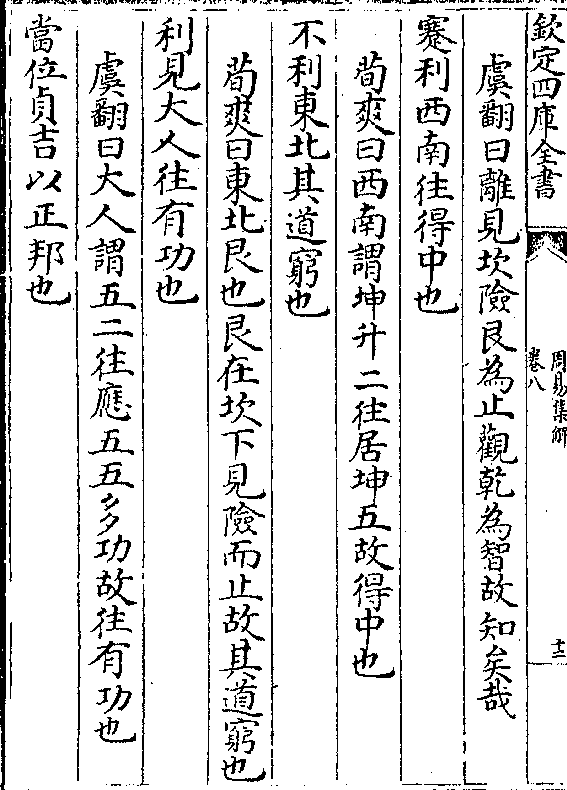 欽定四庫全書
周易集解
卷八
十三
虞翻曰離見坎險艮為止觀乾為智故知矣哉
蹇利西南往得中也
荀爽曰西南謂坤升二往居坤五故得中也
不利東北其道窮也
荀爽曰東北艮也艮在坎下見險而止故其道窮也
利見大人往有功也
虞翻曰大人謂五二往應五五多功故往有功也
當位貞吉以正邦也